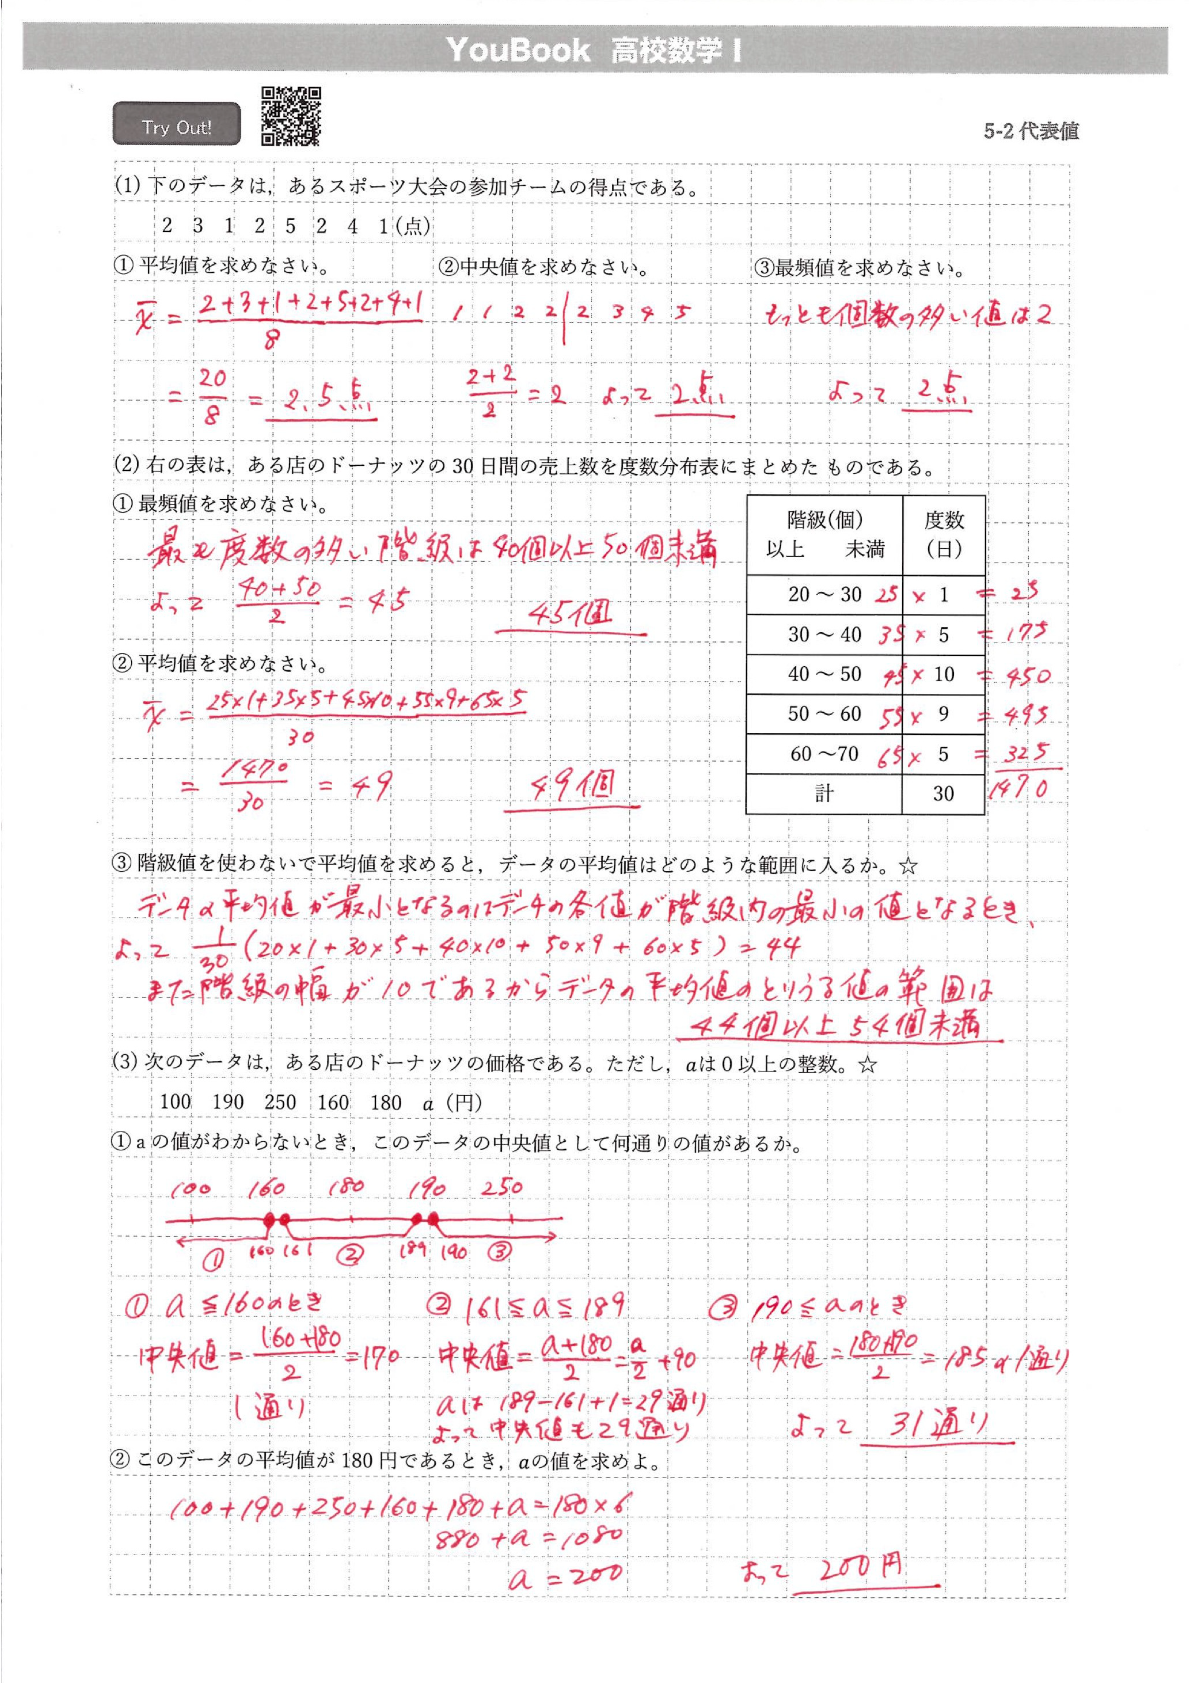 YouBook 高校数学 I
Try Out!
5-2 代表値
(1) 下のデータは，あるスポーツ大会の参加チームの得点である。
2 3 1 2 5 2 4 1 (点)
① 平均値を求めなさい。 ②中央値を求めなさい。 ③最頻値を求めなさい。
x̄ = (2+3+1+2+5+2+4+1)/8 1 1 2 2 | 2 3 4 5 もっとも個数の多い値は2
= 20/8 = 2.5点 (2+2)/2 = 2 よって 2点 よって 2点
(2) 右の表は，ある店のドーナッツの 30 日間の売上数を度数分布表にまとめた ものである。
① 最頻値を求めなさい。
最も度数の多い階級は40個以上50個未満
よって (40+50)/2 = 45 45個
② 平均値を求めなさい。
x̄ = (25×1+35×5+45×10+55×9+65×5)/30
= 1470/30 = 49 49個
階級(個) 度数
以上 未満 (日)
20 ～ 30 25 × 1 = 25
30 ～ 40 35 × 5 = 175
40 ～ 50 45 × 10 = 450
50 ～ 60 55 × 9 = 495
60 ～70 65 × 5 = 325
計 30 1470
③ 階級値を使わないで平均値を求めると，データの平均値はどのような範囲に入るか。☆
データの平均値が最小となるのはデータの各値が階級内の最小の値となるとき、
よって 1/30 (20×1 + 30×5 + 40×10 + 50×9 + 60×5) = 44
また階級の幅が10であるからデータの平均値のとりうる値の範囲は
44個以上54個未満
(3) 次のデータは，ある店のドーナッツの価格である。ただし，aは 0 以上の整数。☆
100 190 250 160 180 a (円)
① a の値がわからないとき，このデータの中央値として何通りの値があるか。
100 160 180 190 250
① 160 161 ② 189 190 ③
① a ≦ 160のとき ② 161 ≦ a ≦ 189 ③ 190 ≦ a のとき
中央値 = (160+180)/2 = 170 中央値 = (a+180)/2 = a/2 + 90 中央値 = (180+190)/2 = 185 の1通り
1通り aは 189-161+1=29通り
よって中央値も29通り よって 31通り
② このデータの平均値が 180 円であるとき，aの値を求めよ。
100+190+250+160+180+a=180×6
880+a=1080
a=200 よって 200円